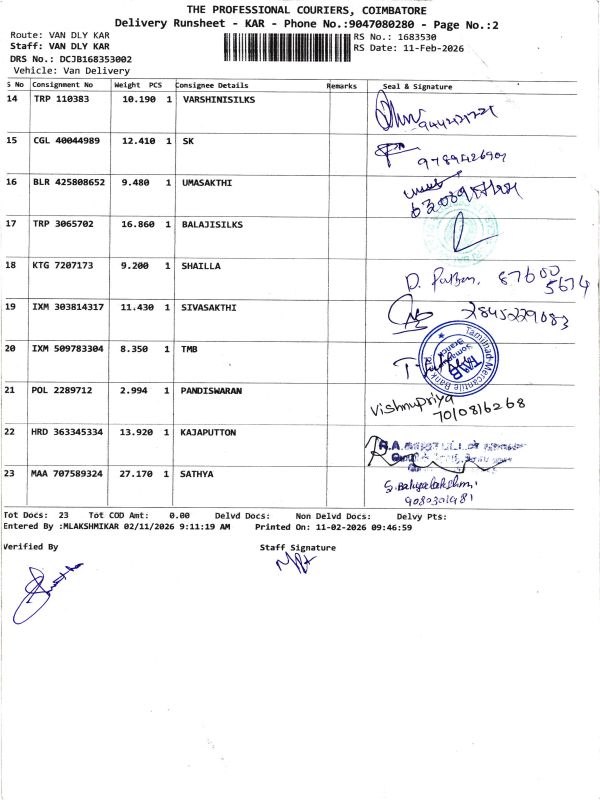 THE PROFESSIONAL COURIERS, COIMBATORE
Delivery Runsheet - KAR - Phone No.:9047080280 - Page No.:2
Route: VAN DLY KAR
Staff: VAN DLY KAR
DRS No.: DCJB168353002
Vehicle: Van Delivery
RS No.: 1683530
RS Date: 11-Feb-2026
S No Consignment No Weight PCS Consignee Details Remarks Seal & Signature
14 TRP 110383 10.190 1 VARSHINISILKS
15 CGL 40044989 12.410 1 SK
16 BLR 425808652 9.480 1 UMASAKTHI
17 TRP 3065702 16.860 1 BALAJISILKS
18 KTG 7207173 9.200 1 SHAILLA
87600
5674
19 IXM 303814317 11.430 1 SIVASAKTHI
20 IXM 509783304 8.350 1 TMB
Tamilnad Mercantile Bank
TMB
21 POL 2289712 2.994 1 PANDISWARAN
Vishnupriya
7010816268
22 HRD 363345334 13.920 1 KAJAPUTTON
23 MAA 707589324 27.170 1 SATHYA
9080301981
Tot Docs: 23 Tot COD Amt: 0.00 Delvd Docs: Non Delvd Docs: Delvy Pts:
Entered By :MLAKSHMIKAR 02/11/2026 9:11:19 AM Printed On: 11-02-2026 09:46:59
Verified By
Staff Signature